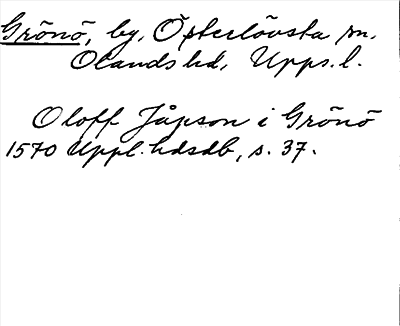 Grönö, by, Österlövsta sn.
Olands hd, Upps. l.
Oloff Jåpson i Grönö
1570 Uppl. hdsdb, s. 37.